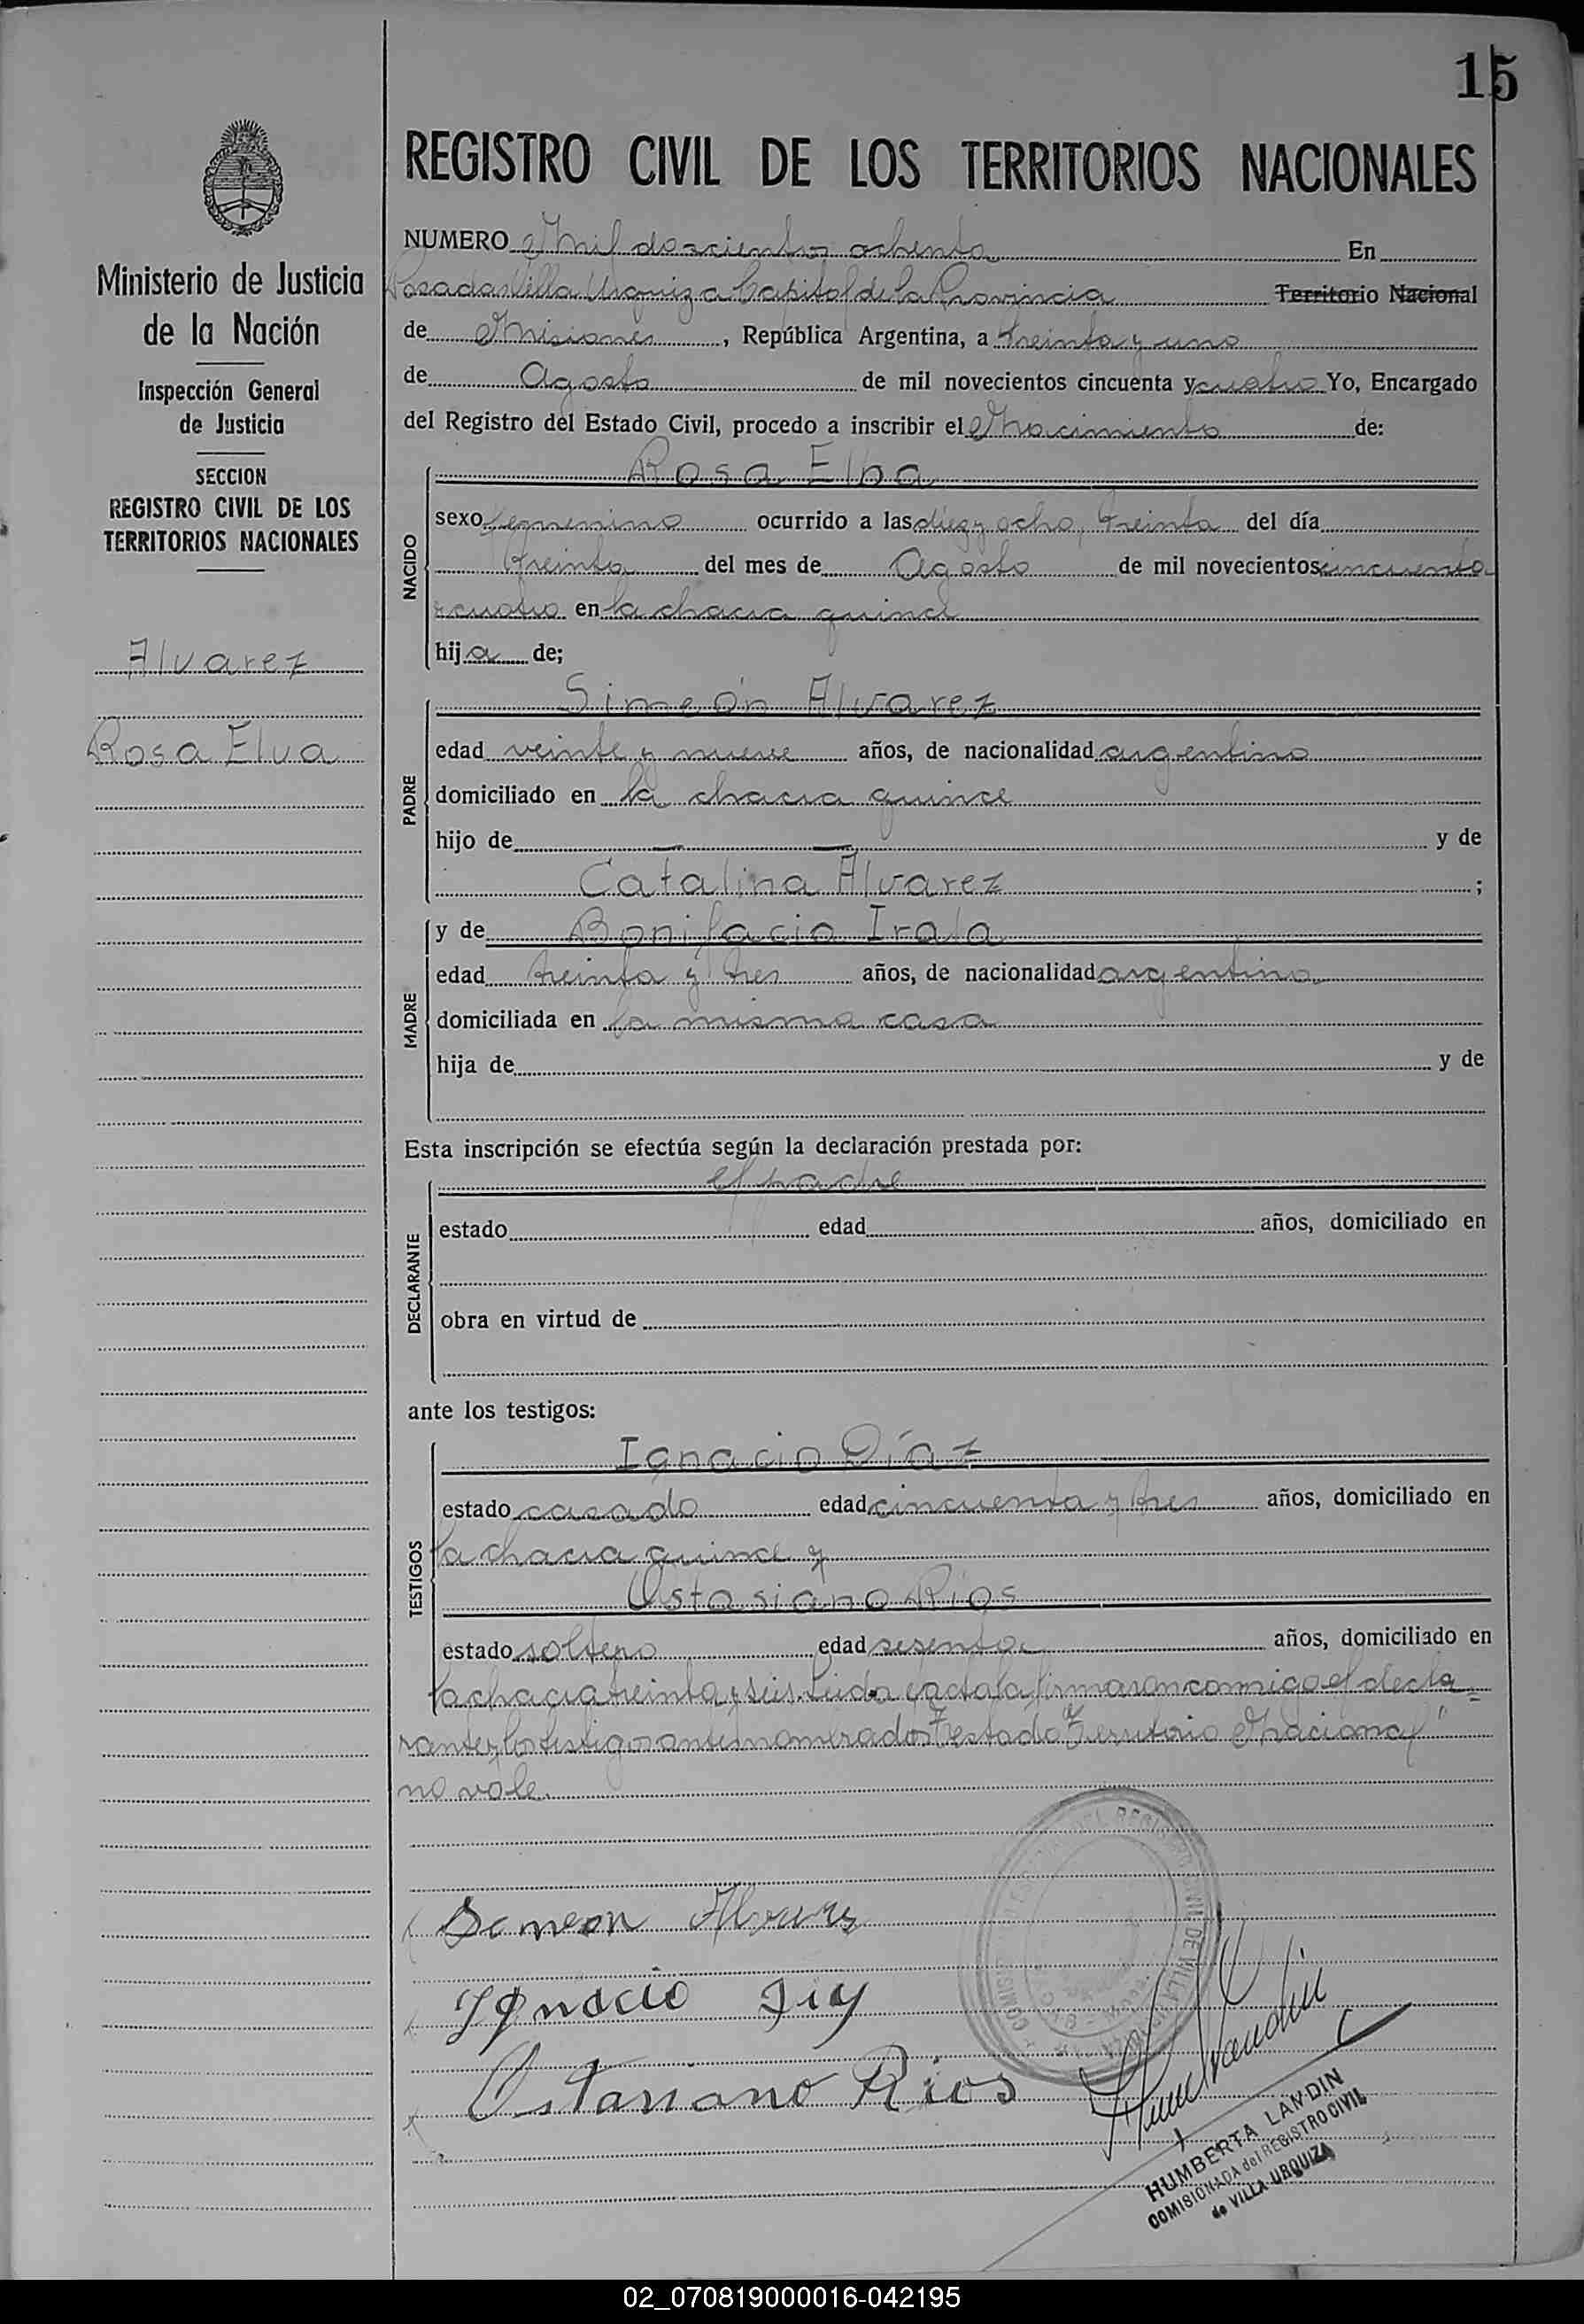 15
REGISTRO CIVIL DE LOS TERRITORIOS NACIONALES
Ministerio de Justicia
de la Nación
Inspección General
de Justicia
SECCION
REGISTRO CIVIL DE LOS
TERRITORIOS NACIONALES
Alvarez
Rosa Elva
NUMERO Mil doscientos ochenta En
Posadas Villa Urquiza Capital de la Provincia Territorio Nacional
de Misiones, República Argentina, a treinta y uno
de Agosto de mil novecientos cincuenta y cuatro Yo, Encargado
del Registro del Estado Civil, procedo a inscribir el Nacimiento de:
NACIDO
Rosa Elba
sexo femenino ocurrido a las diez y ocho, treinta del día
treinta del mes de Agosto de mil novecientos cincuenta
y cuatro en la chacra quince
hija de;
PADRE
Simeón Alvarez
edad veinte y nueve años, de nacionalidad argentino
domiciliado en la chacra quince
hijo de — — y de
Catalina Alvarez ;
MADRE
y de Bonifacia Irala
edad treinta y tres años, de nacionalidad argentina
domiciliada en la misma casa
hija de y de
Esta inscripción se efectúa según la declaración prestada por:
DECLARANTE
el padre
estado edad años, domiciliado en
obra en virtud de
ante los testigos:
TESTIGOS
Ignacio Díaz
estado casado edad cincuenta y tres años, domiciliado en
la chacra quince y
Ostasiano Ríos
estado soltero edad sesenta años, domiciliado en
la chacra treinta y seis. Leida el acta la firmaron conmigo el decla=
rante y los testigos antes nombrados Testado "Territorio Nacional"
no vale.
Simeon Alvarez
Ignacio
Ostasiano Rios
HUMBERTA LANDIN
COMISIONADA del REGISTRO CIVIL
de VILLA URQUIZA
02_070819000016-042195